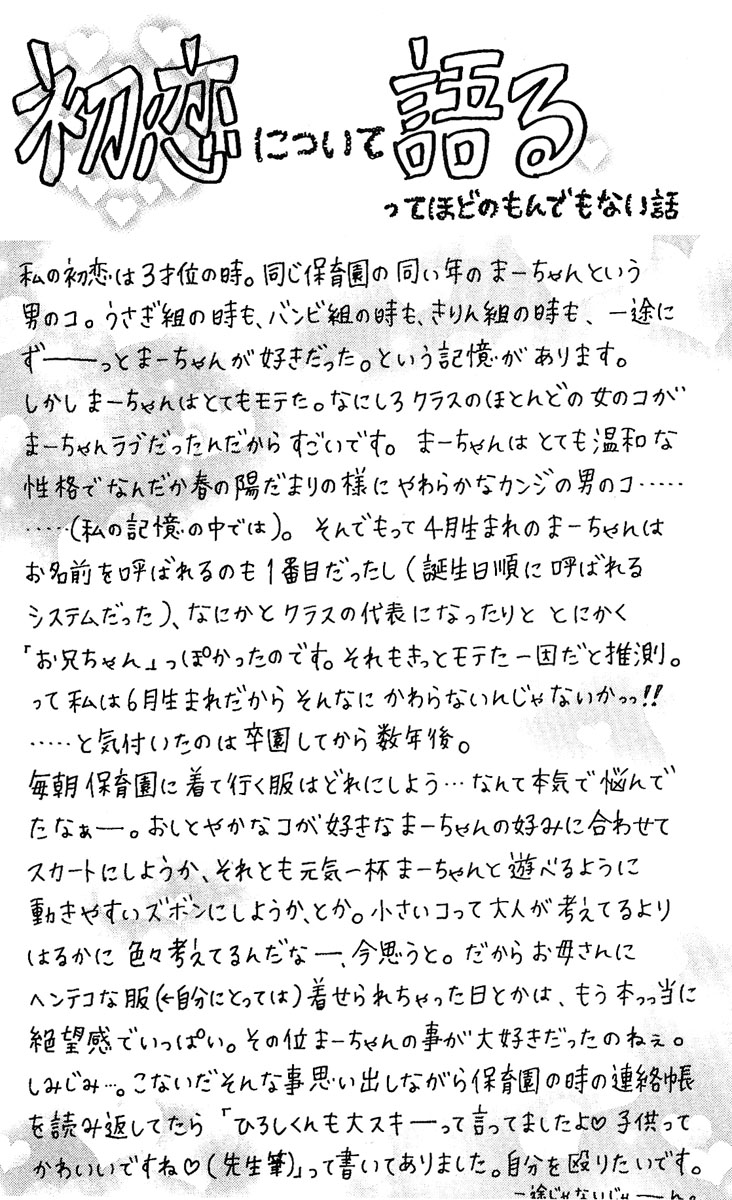 初恋について語る
ってほどのもんでもない話
私の初恋は3才位の時。同じ保育園の同い年のまーちゃんという
男のコ。うさぎ組の時も、バンビ組の時も、きりん組の時も、一途に
ず――っとまーちゃんが好きだった。という記憶があります。
しかしまーちゃんはとてもモテた。なにしろクラスのほとんどの女のコが
まーちゃんラブだったんだからすごいです。 まーちゃんはとても温和な
性格でなんだか春の陽だまりの様にやわらかなカンジの男のコ……
……(私の記憶の中では)。そんでもって4月生まれのまーちゃんは
お名前を呼ばれるのも1番目だったし(誕生日順に呼ばれる
システムだった)、なにかとクラスの代表になったりと とにかく
「お兄ちゃん」っぽかったのです。それもきっとモテた一因だと推測。
って私は6月生まれだからそんなにかわらないんじゃないかっっ!!
……と気付いたのは卒園してから数年後。
毎朝保育園に着て行く服はどれにしよう…なんて本気で悩んで
たなぁー。おしとやかなコが好きなまーちゃんの好みに合わせて
スカートにしようか、それとも元気一杯まーちゃんと遊べるように
動きやすいズボンにしようか、とか。小さいコって大人が考えてるより
はるかに色々考えてるんだなー、今思うと。だからお母さんに
ヘンテコな服(←自分にとっては)着せられちゃった日とかは、もう本っっ当に
絶望感でいっぱい。その位まーちゃんの事が大好きだったのねぇ。
しみじみ…。こないだそんな事思い出しながら保育園の時の連絡帳
を読み返してたら「ひろしくんも大スキーって言ってましたよ♡子供って
かわいいですね♡(先生筆)」って書いてありました。自分を殴りたいです。
一途じゃないじゃーーん。